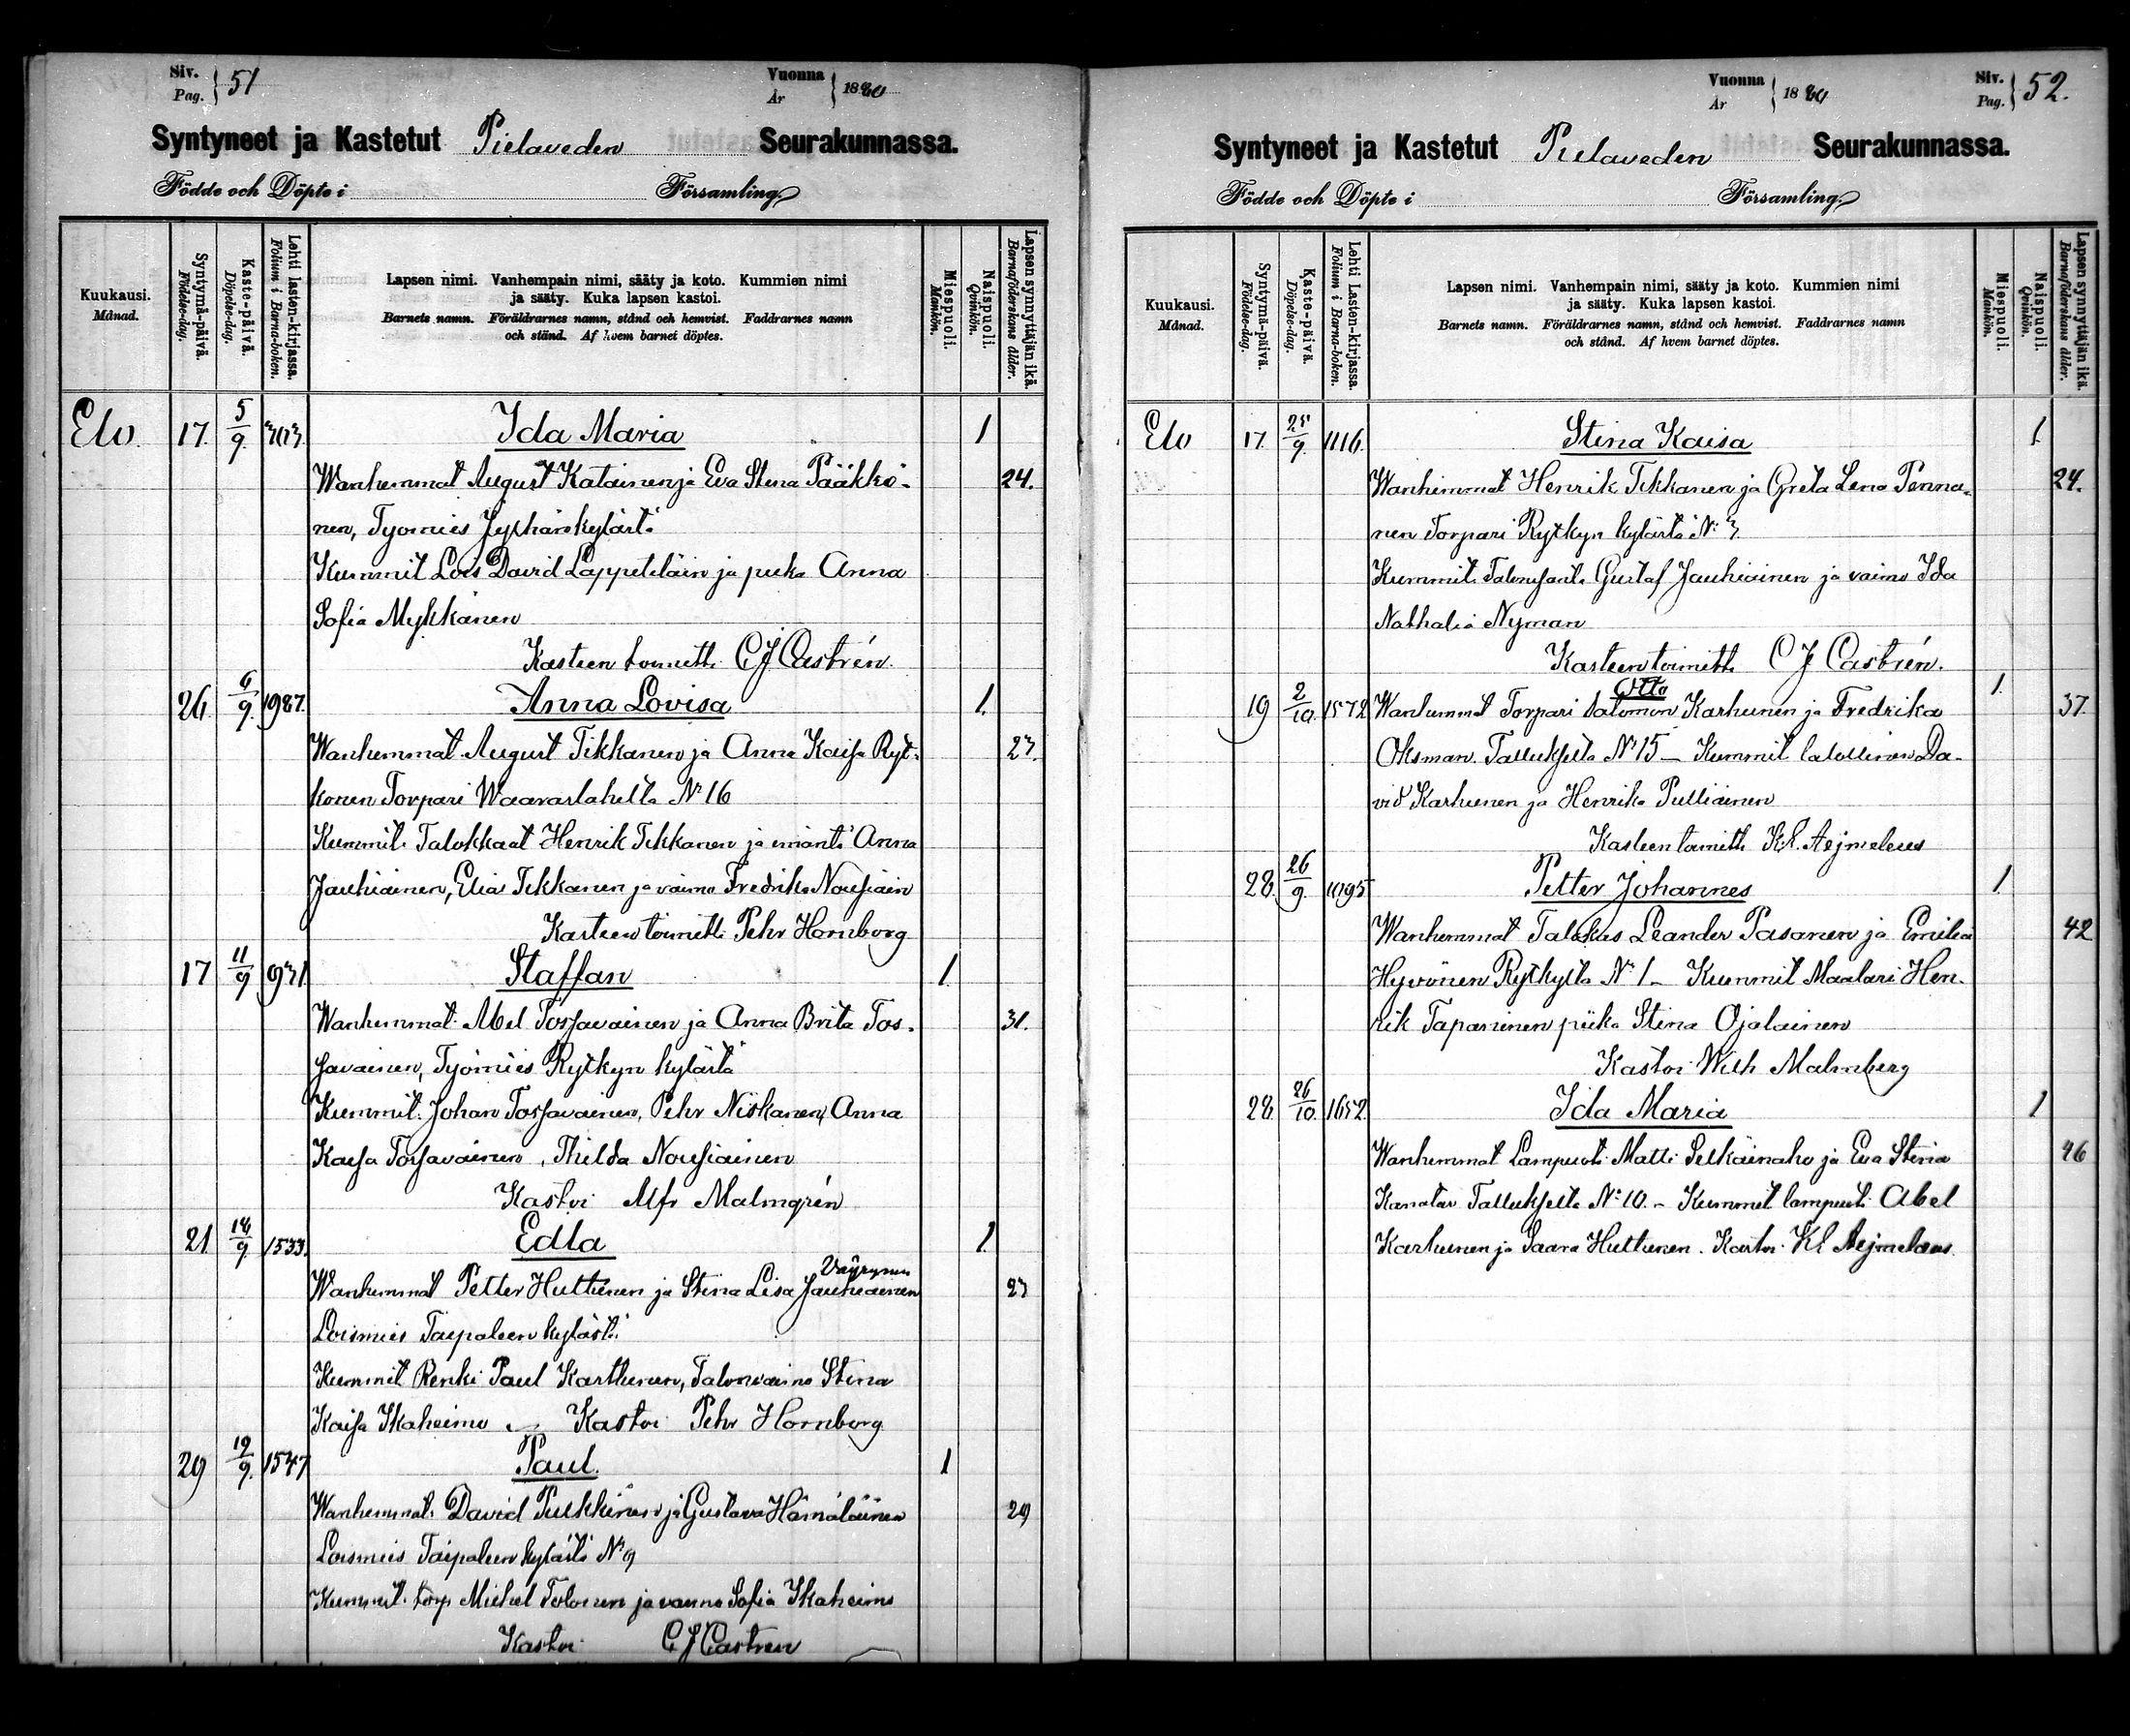 Siv.
Pag. 51
Vuonna
År 1880
Syntyneet ja Kastetut Pielaveden Seurakunnassa.
Födde och Döpte i Församling.
Kuukausi.
Månad.
Syntymä-päivä.
Födelse-dag.
Kaste-päivä.
Döpelse-dag.
Lehti lasten-kirjassa.
Folium i Barna-boken.
Lapsen nimi. Vanhempain nimi, sääty ja koto. Kummien nimi
ja sääty. Kuka lapsen kastoi.
Barnets namn. Föräldrarnes namn, stånd och hemvist. Faddrarnes namn
och stånd. Af hvem barnet döptes.
Miespuoli.
Mankön.
Naispuoli.
Qvinkön.
Lapsen synnyttäjän ikä.
Barnaföderskans ålder.
Elo. 17. 5/9. Ida Maria 1
Wanhemmat August Katainen ja Eva Stina Pääkkö- 24.
nen, Työmies Jylhänkylästä
Kummit Lois David Lappeteläin ja piika Anna
Sofia Mykkänen
Kasteen toimitti C J Castrén.
26. 6/9. 1987. Anna Lovisa 1.
Wanhemmat August Tikkanen ja Anna Kaisa Ryt- 23.
könen Torpari Waaraslahelta No 16
Kummit. Talokkaat Henrik Tikkanen ja emäntä Anna
Jauhiainen, Elia Tikkanen ja vaimo Fredrika Nousiain
Kasteen toimitti Pehr Hornborg
17 11/9 931. Staffan 1.
Wanhemmat Abel Tossavainen ja Anna Brita Tos- 31.
savainen, Työmies Rytkyn kylästä
Kummit. Johan Tossavainen, Pehr Niskanen, Anna
Kaisa Tossavainen, Thilda Nousiainen
Kastoi Alfr Malmgrén
21 14/9. 1533. Edla 1.
Väyrynen
Wanhemmat Petter Huttunen ja Stina Lisa Jauhiainen 23
Loismies Taipaleen kylästä
Kummit Renki Paul Karthunen, Talonvaimo Stina
Kaisa Ikäheimo Kastoi Pehr Hornborg
29 19/9. 1547 Paul. 1
Wanhemmat. David Pulkkinen ja Gustava Hämäläinen 29
Loismies Taipaleen kylästä No 9
Kummit. torp Michel Tolonen ja vaimo Sofia Ikäheimo
Kastoi C J Castren
Vuonna
År 1880
Siv.
Pag. 52.
Syntyneet ja Kastetut Pielaveden Seurakunnassa.
Födde och Döpte i Församling.
Kuukausi.
Månad.
Syntymä-päivä.
Födelse-dag.
Kaste-päivä.
Döpelse-dag.
Lehti Lasten-kirjassa.
Folium i Barna-boken.
Lapsen nimi. Vanhempain nimi, sääty ja koto. Kummien nimi
ja sääty. Kuka lapsen kastoi.
Barnets namn. Föräldrarnes namn, stånd och hemvist. Faddrarnes namn
och stånd. Af hvem barnet döptes.
Miespuoli.
Mankön.
Naispuoli.
Qvinkön.
Lapsen synnyttäjän ikä.
Barnaföderskans ålder.
Elo 17. 25/9. 1116. Stina Kaisa 1.
Wanhemmat Henrik Tikkanen ja Greta Lena Penna- 24.
nen Torpari Rytkyn kylästä No 3
Kummit Talonisäntä Gustaf Jauhiainen ja vaimo Ida
Nathalia Nyman
Kasteen toimitti C J Castrén.
Otto 1.
19 2/10. 1572 Wanhemmat Torpari Salomon Karhunen ja Fredrika 37.
Oksman. Tallukselta No 15 – Kummit Da-
vid Karhunen ja Henrika Pulliainen
Kasteen toimitti K.L. Aejmelæus
28 26/9. 1095 Petter Johannes 1.
Wanhemmat Talokas Leander Pasanen ja Emilia 42
Hyvönen Rytkyltä No 1 – Kummit Maalari Hen-
rik Tapaninen piika Stina Ojalainen
Kastoi Wilh Malmberg
28. 26/10. 1652. Ida Maria 1
Wanhemmat Lampuoti Matti Selkäinaho ja Eva Stina 46
Kanatar Tallukselta No 10. – Kummit lampuoti Abel
Karhunen ja Saara Huttunen. Kastoi. KL Aejmelæus.